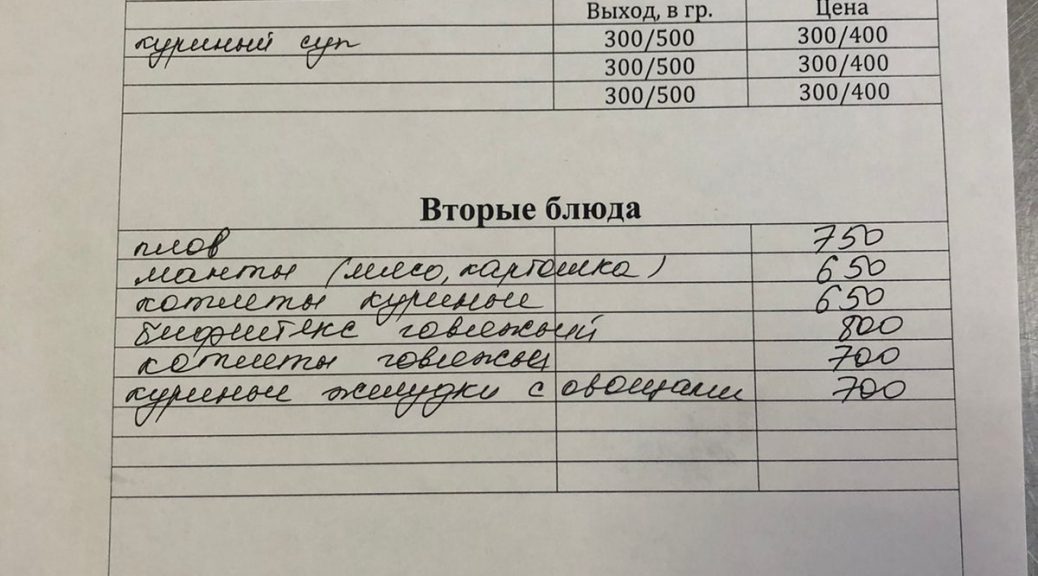 Выход, в гр. Цена
куриный суп 300/500 300/400
300/500 300/400
300/500 300/400
Вторые блюда
плов 750
манты (мясо, картошка) 650
котлеты куриные 650
бифштекс говяжий 800
котлеты говяжьи 700
куриные желудки с овощами 700